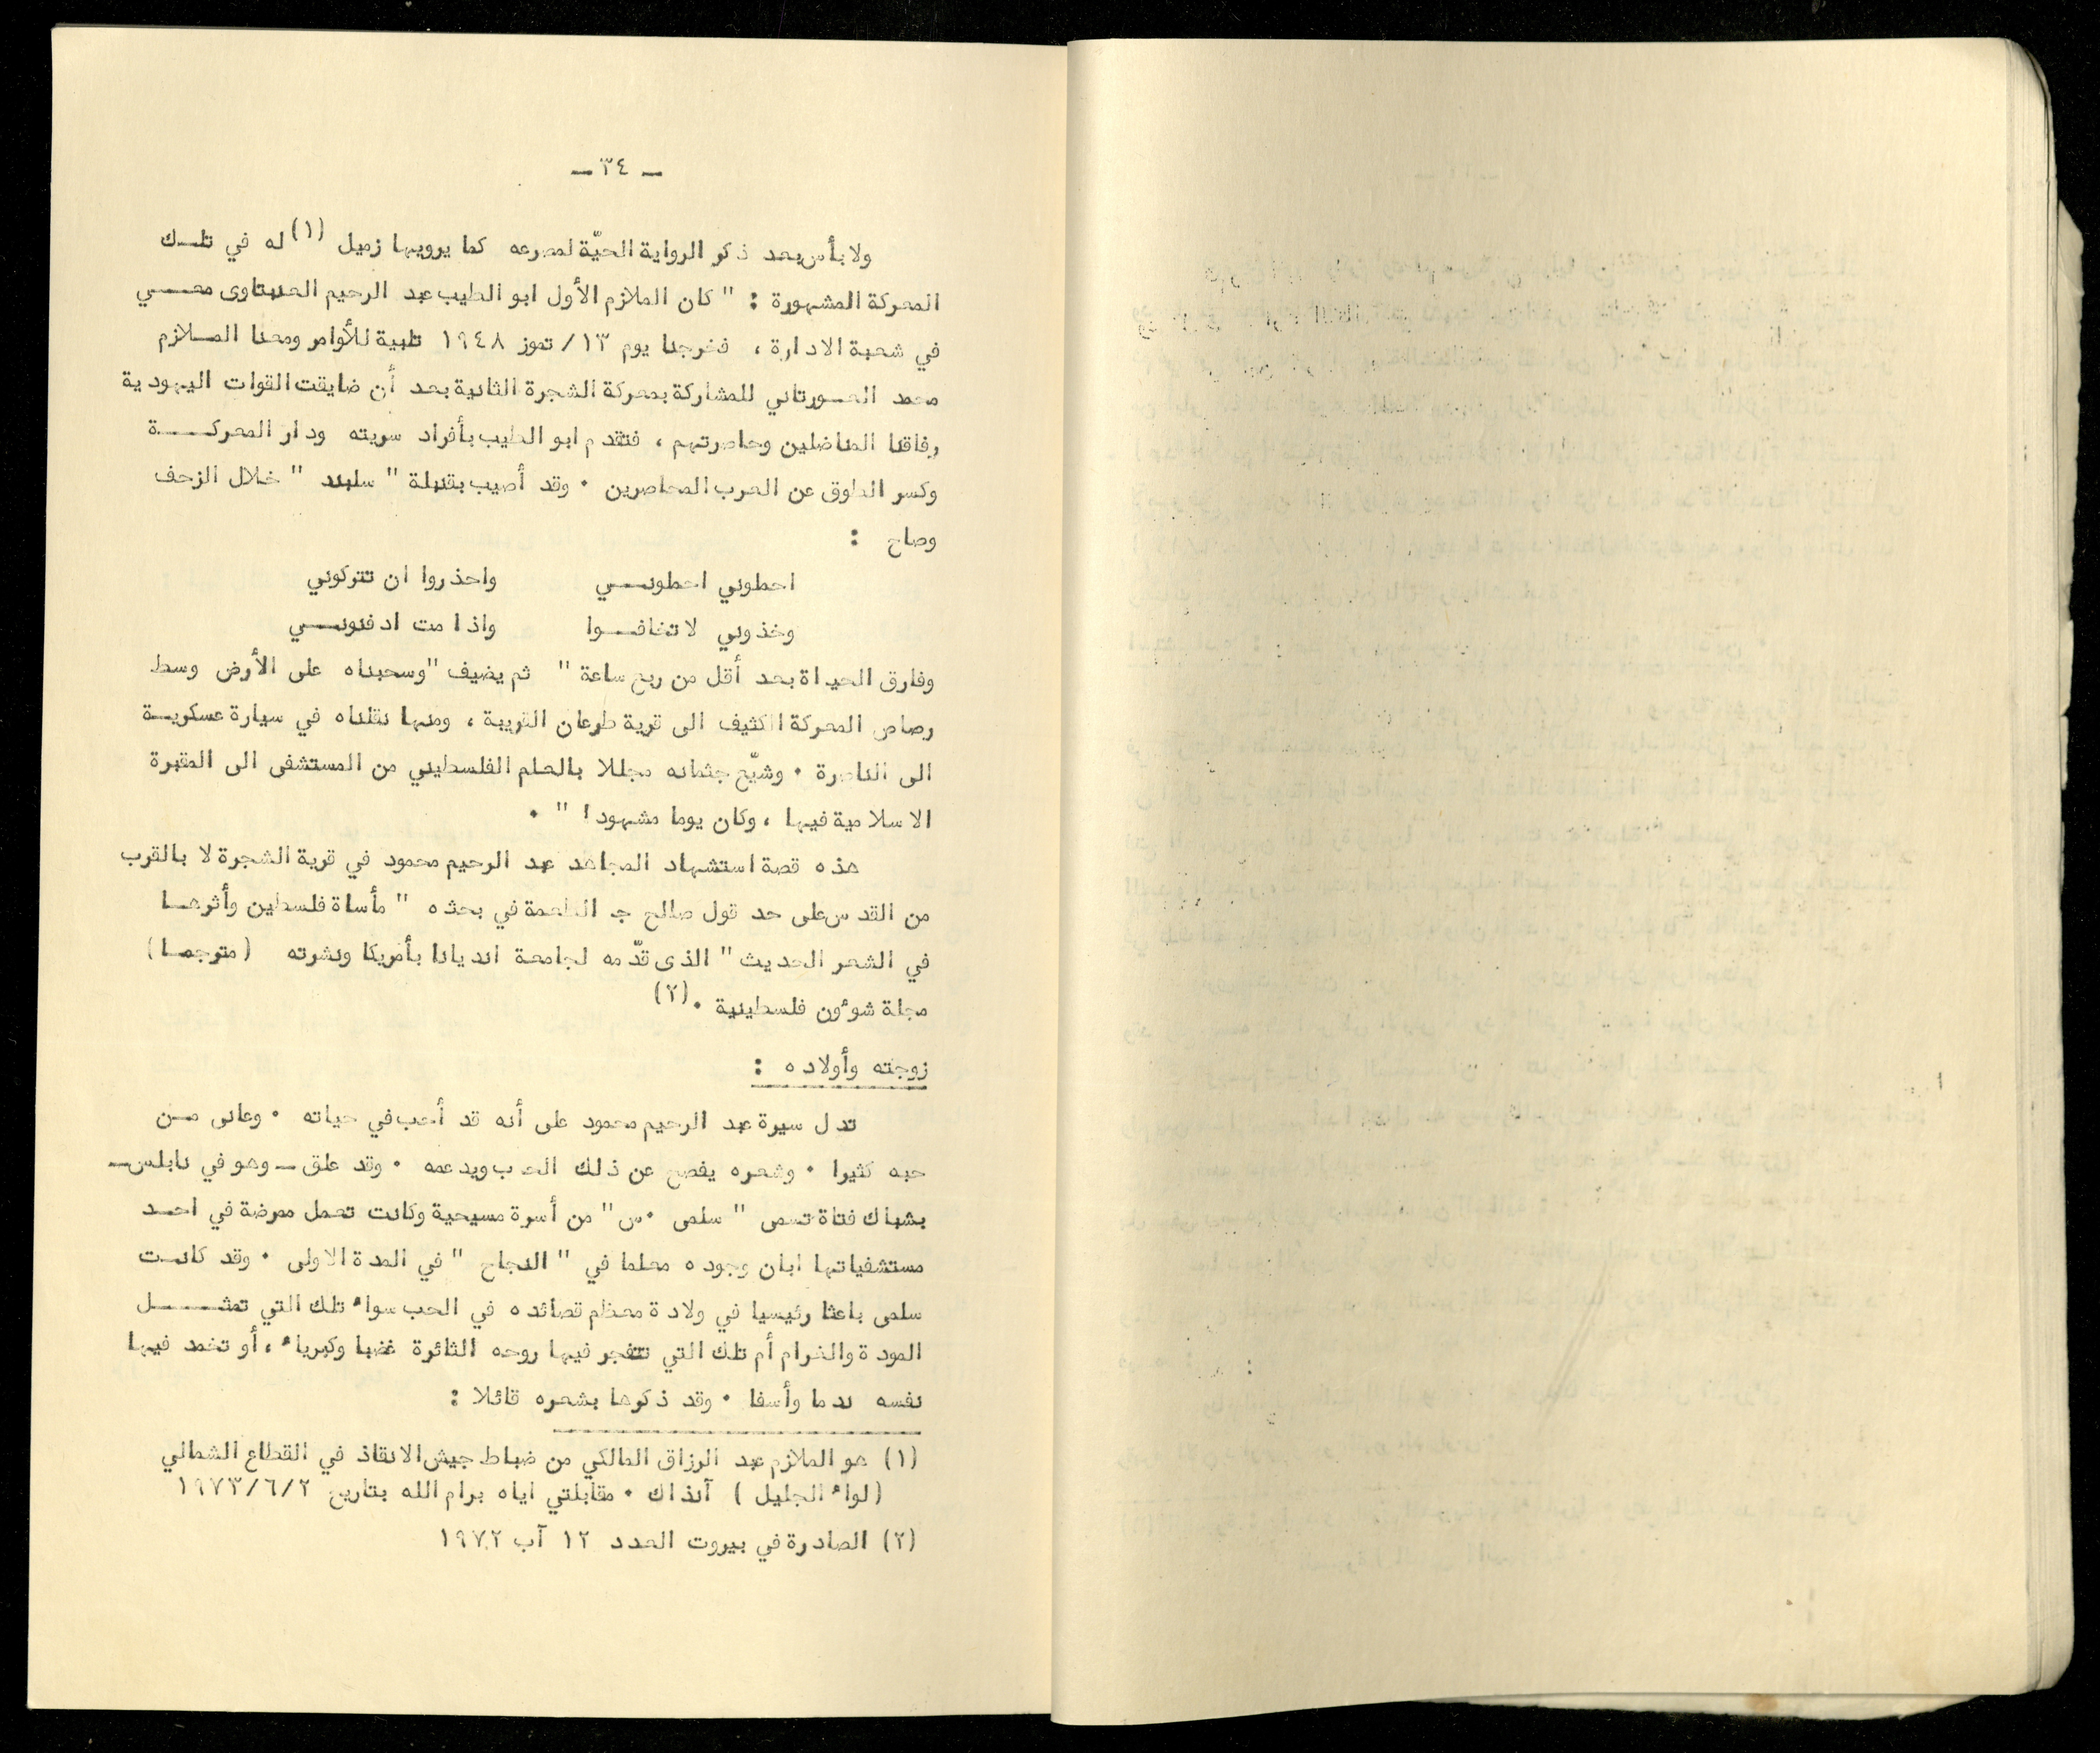 - ٣٤ -
ولا بأس بعد ذكر الرواية الحيّة لمصرعه كما يرويها زميل (١) له في تلك
المعركة المشهورة : " كان الملازم الأول ابو الطيب عبد الرحيم العنبتاوى معي
في شعبة الادارة ، فخرجنا يوم ١٣/ تموز ١٩٤٨ تلبية للأوامر ومعنا الملازم
محمد الحورتاني للمشاركة بمعركة الشجرة الثانية بعد أن ضايقت القوات اليهودية
رفاقنا المناضلين وحاصرتهم ، فتقدم ابو الطيب بأفراد سريته ودار المعركة
وكسر الطوق عن العرب المحاصرين . وقد أصيب بقنبلة " سلبند " خلال الزحف
وصاح :
احطوني احطوني واحذروا ان تتركوني
وخذوني لا تخافوا واذا مت ادفنوني
وفارق الحياة بعد أقل من ربع ساعة " ثم يضيف " وسحبناه على الأرض وسط
رصاص المعركة الكثيف الى قرية طرعان القريبة ، ومنها نقلناه في سيارة عسكرية
الى الناصرة . وشيّع جثمانه مجللا بالعلم الفلسطيني من المستشفى الى المقبرة
الاسلامية فيها ، وكان يوما مشهودا " .
هذه قصة استشهاد المجاهد عبد الرحيم محمود في قرية الشجرة لا بالقرب
من القدس على حد قول صالح جـ الطعمة في بحثه " مأساة فلسطين وأثرها
في الشعر الحديث " الذى قدّمه لجامعة انديانا بأمريكا ونشرته ( مترجما )
مجلة شؤون فلسطينية . (٢)
زوجته وأولاده :
تدل سيرة عبد الرحيم محمود على أنه قد أحب في حياته . وعانى من
حبه كثيرا . وشعره يفصح عن ذلك الحب ويدعمه . وقد علق - وهو في نابلس -
بشباك فتاة تسمى " سلمى .س " من أسرة مسيحية وكانت تعمل ممرضة في احد
مستشفياتها ابان وجوده معلما في " النجاح " في المدة الاولى . وقد كانت
سلمى باعثا رئيسيا في ولادة معظم قصائده في الحب سواء تلك التي تمثل
المودة والغرام أم تلك التي تتفجر فيها روحه الثائرة غضبا وكبرياء ، أو تخمد فيها
نفسه ندما وأسفا . وقد ذكرها بشعره قائلا :
(١) هو الملازم عبد الرزاق المالكي من ضباط جيش الانقاذ في القطاع الشمالي
( لواء الجليل ) آنذاك . مقابلتي اياه برام الله بتاريخ ١٩٧٣/٦/٢
(٢) الصادرة في بيروت العدد ١٢ آب ١٩٧٢